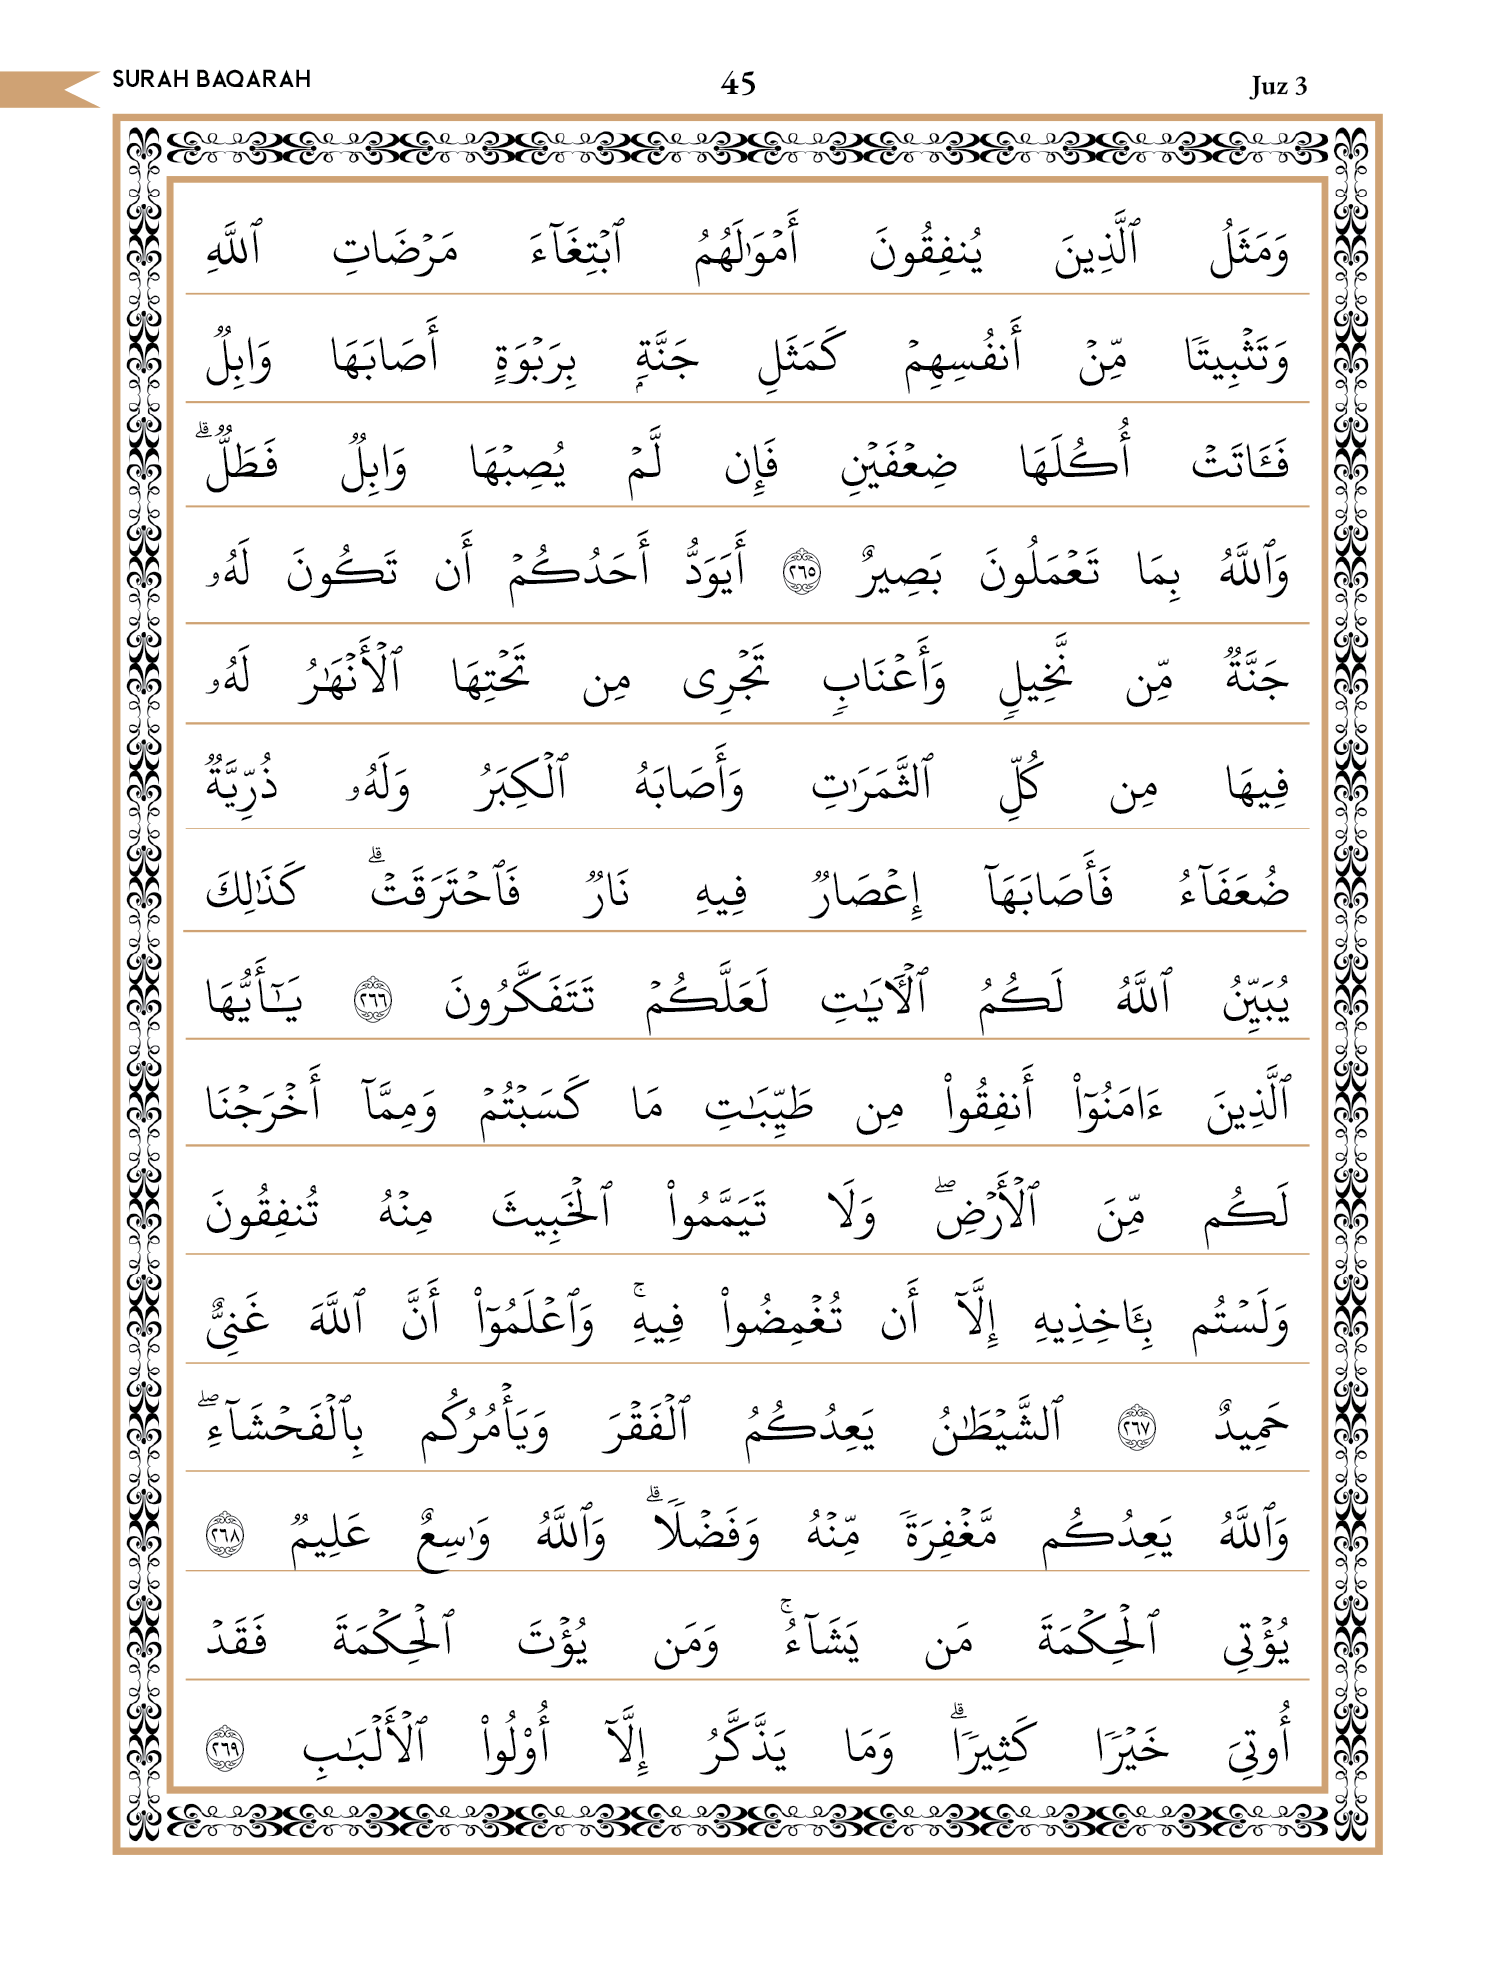 SURAH BAQARAH
45
Juz 3
وَمَثَلُ ٱلَّذِينَ يُنفِقُونَ أَمْوَٰلَهُمُ ٱبْتِغَآءَ مَرْضَاتِ ٱللَّهِ
وَتَثْبِيتًا مِّنْ أَنفُسِهِمْ كَمَثَلِ جَنَّةٍۭ بِرَبْوَةٍ أَصَابَهَا وَابِلٌ
فَـَٔاتَتْ أُكُلَهَا ضِعْفَيْنِ فَإِن لَّمْ يُصِبْهَا وَابِلٌ فَطَلٌّ ۗ
وَٱللَّهُ بِمَا تَعْمَلُونَ بَصِيرٌ ٢٦٥ أَيَوَدُّ أَحَدُكُمْ أَن تَكُونَ لَهُۥ
جَنَّةٌ مِّن نَّخِيلٍ وَأَعْنَابٍ تَجْرِى مِن تَحْتِهَا ٱلْأَنْهَـٰرُ لَهُۥ
فِيهَا مِن كُلِّ ٱلثَّمَرَٰتِ وَأَصَابَهُ ٱلْكِبَرُ وَلَهُۥ ذُرِّيَّةٌ
ضُعَفَآءُ فَأَصَابَهَآ إِعْصَارٌ فِيهِ نَارٌ فَٱحْتَرَقَتْ ۗ كَذَٰلِكَ
يُبَيِّنُ ٱللَّهُ لَكُمُ ٱلْـَٔايَـٰتِ لَعَلَّكُمْ تَتَفَكَّرُونَ ٢٦٦ يَـٰٓأَيُّهَا
ٱلَّذِينَ ءَامَنُوٓا۟ أَنفِقُوا۟ مِن طَيِّبَـٰتِ مَا كَسَبْتُمْ وَمِمَّآ أَخْرَجْنَا
لَكُم مِّنَ ٱلْأَرْضِ ۖ وَلَا تَيَمَّمُوا۟ ٱلْخَبِيثَ مِنْهُ تُنفِقُونَ
وَلَسْتُم بِـَٔاخِذِيهِ إِلَّآ أَن تُغْمِضُوا۟ فِيهِ ۚ وَٱعْلَمُوٓا۟ أَنَّ ٱللَّهَ غَنِىٌّ
حَمِيدٌ ٢٦٧ ٱلشَّيْطَـٰنُ يَعِدُكُمُ ٱلْفَقْرَ وَيَأْمُرُكُم بِٱلْفَحْشَآءِ ۖ
وَٱللَّهُ يَعِدُكُم مَّغْفِرَةً مِّنْهُ وَفَضْلًا ۗ وَٱللَّهُ وَٰسِعٌ عَلِيمٌ ٢٦٨
يُؤْتِى ٱلْحِكْمَةَ مَن يَشَآءُ ۚ وَمَن يُؤْتَ ٱلْحِكْمَةَ فَقَدْ
أُوتِىَ خَيْرًا كَثِيرًا ۗ وَمَا يَذَّكَّرُ إِلَّآ أُو۟لُوا۟ ٱلْأَلْبَـٰبِ ٢٦٩